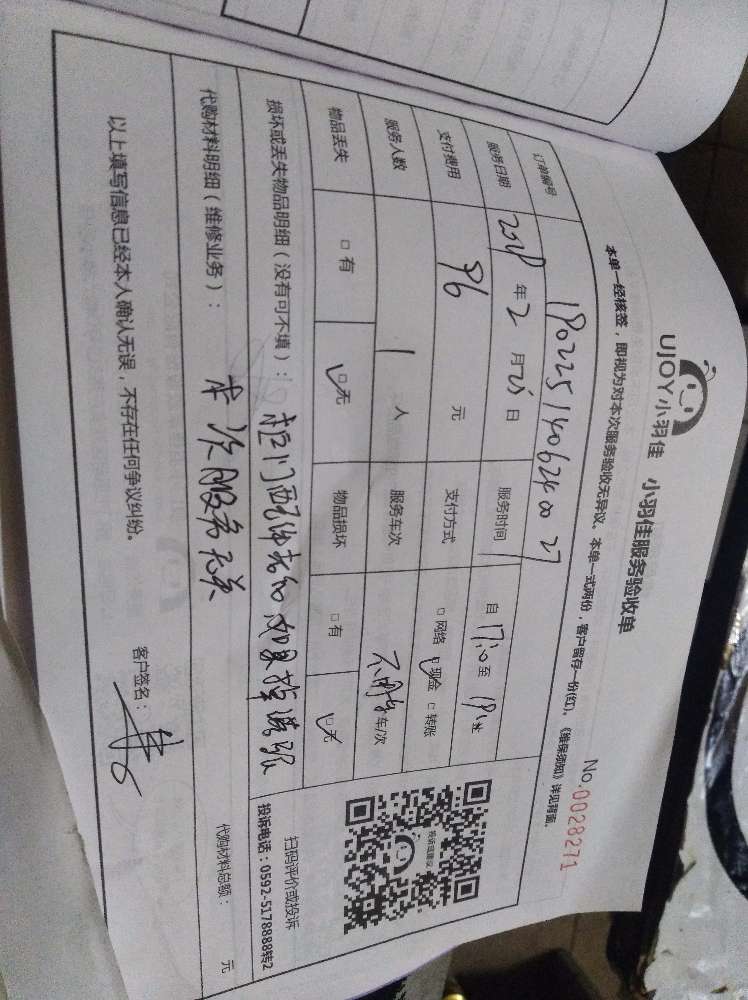 UJOY小羽佳 小羽佳服务验收单
No.0028271
本单一经核签,即视为对本次服务验收无异议。本单一式两份,客户留存一份(红)。《维保须知》详见背面。
订单编号 1802251406240027
服务日期 2018年2月25日 服务时间 自17:10至19:12
支付费用 96元 支付方式 □网络 ☑现金 □转账
服务人数 1人 服务车次 不用车 车/次
物品丢失 □有 ☑无 物品损坏 □有 ☑无
损坏或丢失物品明细(没有可不填):
本次服务无关
代购材料明细(维修业务):
代购材料总额: 元
以上填写信息已经本人确认无误,不存在任何争议纠纷。
客户签名:
投诉或建议
扫码评价或投诉
投诉电话:0592-5178888转2